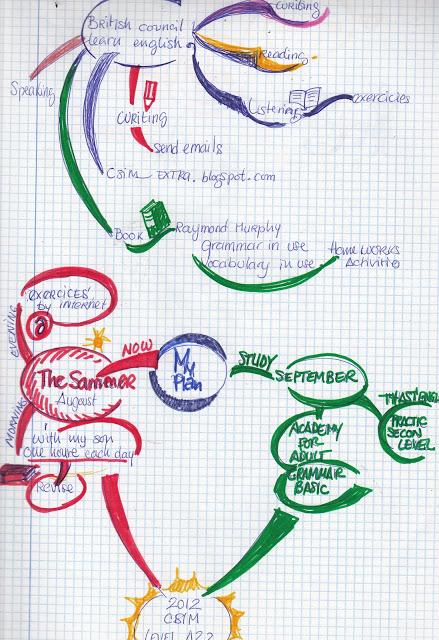 Writing
British council
learn english
Reading
Speaking
Listening
exercicies
Writing
send emails
CSIM EXTRA.blogspot.com
Book
Raymond Murphy
Grammar in use
Vocabulary in use
Home works
Activities
exercices
by internet
EVENING
NOW
My
Plan
STUDY
SEPTEMBER
The Sammer
August
MORNING
with my son
One houre each day
Revise
ACADEMY
FOR
ADULT
GRAMMAR
BASIC
PRACTIC
SECON
LEVEL
2012
LEVEL A2.2